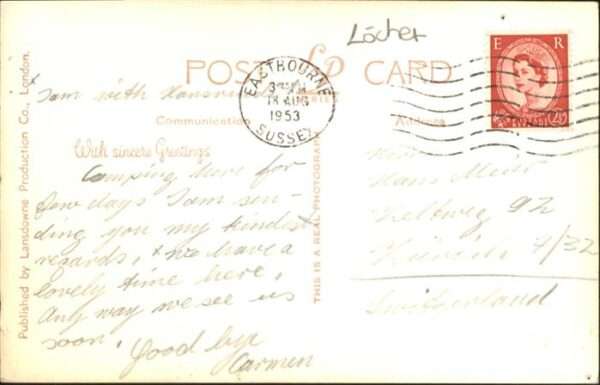 Löcher
POST CARD
LP
SERIES
EASTBOURNE
18 AUG
1953
SUSSEX
E R
POSTAGE REVENUE
2½
Communication
Address
With sincere Greetings
I am with
Camping here for
few days I am sen-
ding you my kindest
regards, & we have a
lovely time here,
Any way we see us
soon. Good bye
Carmen
Hans Meier
92
Zürich 7/32
Switzerland
THIS IS A REAL PHOTOGRAPH
Published by Lansdowne Production Co., London.